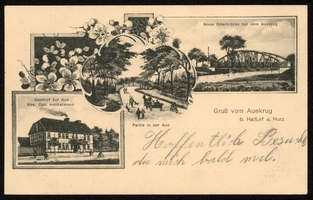 Neue Okerbrücke bei dem Auekrug
Gasthof zur Aue
Bes. Carl
Partie in der Aue
Gruß vom Auekrug
b. a. Harz
Hoffentlich Besuchst
du mich bald mal.